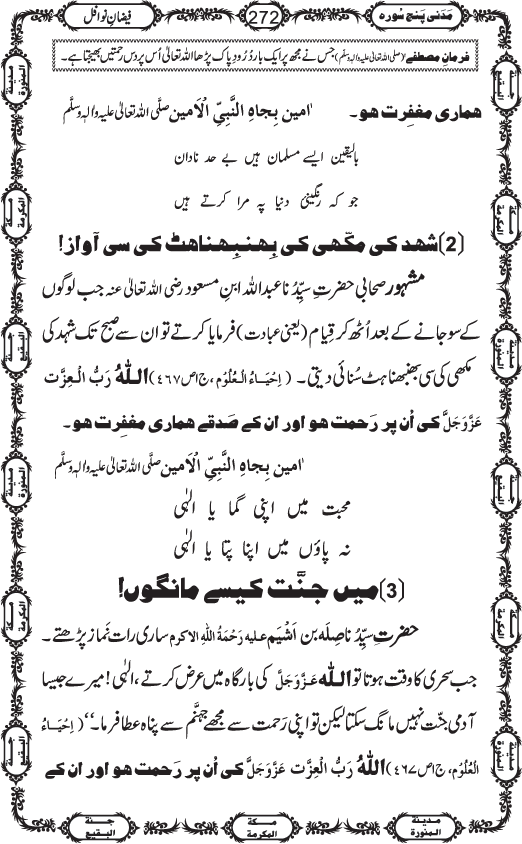 مَدَنی پَنج سُورہ 272 فیضانِ نوافل
فرمانِ مصطفٰے (صلی اللہ تعالیٰ علیہ والہٖ وسلّم) جس نے مجھ پر ایک بار دُرُودِ پاک پڑھا اللہ تعالیٰ اُس پر دس رحمتیں بھیجتا ہے۔
ھماری مغفِرت ھو۔ اٰمین بِجاہِ النَّبِیِّ الْاَمین صلَّی اللہ تعالیٰ علیہ والہٖ وسلَّم
بالیقین ایسے مسلمان ہیں بے حد نادان
جو کہ رنگینیٔ دنیا پہ مرا کرتے ہیں
(2) شھد کی مکّھی کی بِھنبِھناھٹ کی سی آواز!
مشہور صحابی حضرتِ سیِّدُنا عبداللہ ابنِ مسعود رضی اللہ تعالیٰ عنہ جب لوگوں
کے سو جانے کے بعد اُٹھ کر قِیام (یعنی عبادت) فرمایا کرتے تو ان سے صبح تک شہد کی
مکھی کی سی بھنبھناہٹ سُنائی دیتی۔ (اِحْیَاءُ الْعُلُوْم ،ج۱ص۴۶۷) اللہُ رَبُّ الْعِزَّت
عَزَّوَجَلَّ کی اُن پر رَحمت ھو اور ان کے صَدقے ھماری مغفِرت ھو۔
اٰمین بِجاہِ النَّبِیِّ الْاَمین صلَّی اللہ تعالیٰ علیہ والہٖ وسلَّم
محبت میں اپنی گما یا الٰہی
نہ پاؤں میں اپنا پتا یا الٰہی
(3) میں جنَّت کیسے مانگوں!
حضرتِ سیِّدُنا صِلَہ بن اَشْیَم علیہ رَحْمَۃُ اللہِ الاکرم ساری رات نَماز پڑھتے۔
جب سحری کا وقت ہوتا تو اللہ عَزَّوَجَلَّ کی بارگاہ میں عرض کرتے، الٰہی! میرے جیسا
آدمی جنّت نہیں مانگ سکتا لیکن تو اپنی رَحمت سے مجھے جہنَّم سے پناہ عطا فرما۔‘‘ (اِحْیَاءُ
الْعُلُوْم، ج۱ص۴۶۷) اللہُ رَبُّ الْعِزَّت عَزَّوَجَلَّ کی اُن پر رَحمت ھو اور ان کے
مدینۃ المنورۃ
مکۃ المکرمۃ
جنۃ البقیع
مدینۃ المنورۃ
مکۃ المکرمۃ
جنۃ البقیع
جنۃ البقیع
مکۃ المکرمۃ
مدینۃ المنورۃ
جنۃ البقیع
مکۃ المکرمۃ
مدینۃ المنورۃ
مدینۃ المنورۃ
مکۃ المکرمۃ
جنۃ البقیع